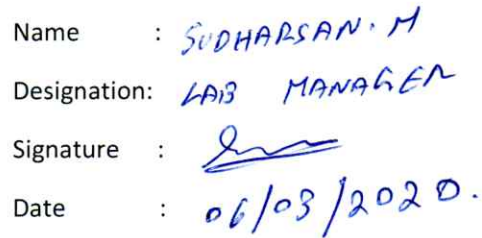 Name : SUDHARSAN. M
Designation: LAB MANAGER
Signature :
Date : 06/03/2020.